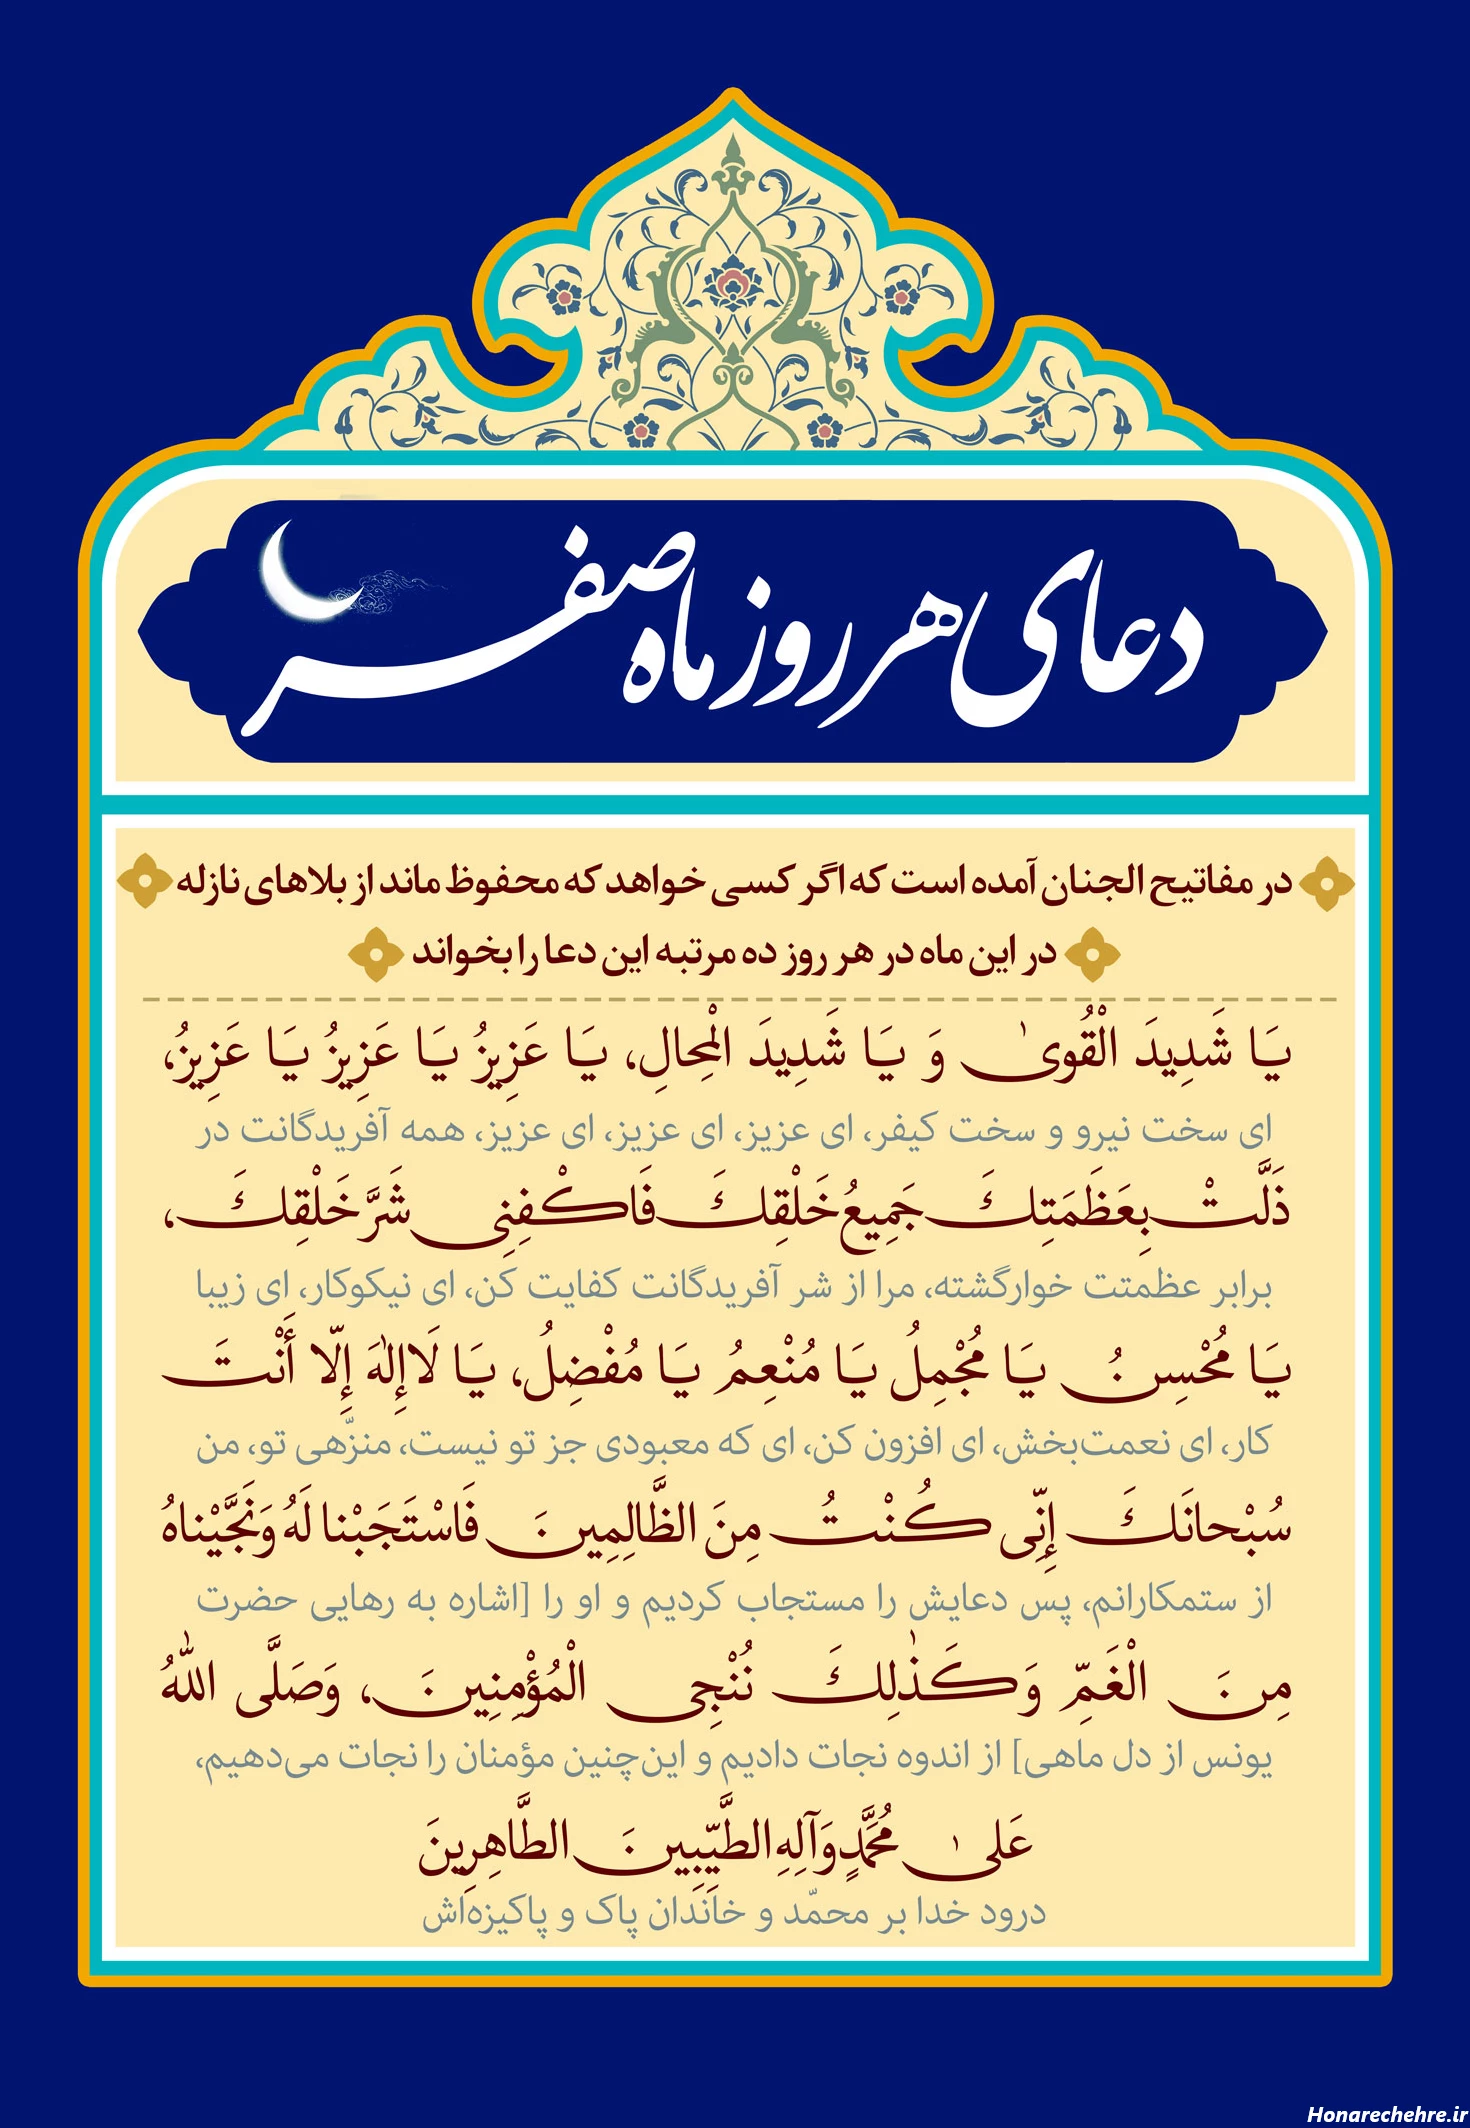 دعای هر روز ماه صفر
در مفاتیح الجنان آمده است که اگر کسی خواهد که محفوظ ماند از بلاهای نازله
در این ماه در هر روز ده مرتبه این دعا را بخواند
یَا شَدِیدَ الْقُویٰ وَ یَا شَدِیدَ الْمِحالِ، یَا عَزِیزُ یَا عَزِیزُ یَا عَزِیزُ،
ای سخت نیرو و سخت کیفر، ای عزیز، ای عزیز، ای عزیز، همه آفریدگانت در
ذَلَّتْ بِعَظَمَتِكَ جَمِیعُ خَلْقِكَ فَاكْفِنِی شَرَّ خَلْقِكَ،
برابر عظمتت خوارگشته، مرا از شر آفریدگانت کفایت کن، ای نیکوکار، ای زیبا
یَا مُحْسِنُ یَا مُجْمِلُ یَا مُنْعِمُ یَا مُفْضِلُ، یَا لَاإِلٰهَ إِلّا أَنْتَ
کار، ای نعمت‌بخش، ای افزون کن، ای که معبودی جز تو نیست، منزّهی تو، من
سُبْحانَكَ إِنِّی كُنْتُ مِنَ الظَّالِمِینَ فَاسْتَجَبْنا لَهُ وَنَجَّیْناهُ
از ستمکارانم، پس دعایش را مستجاب کردیم و او را [اشاره به رهایی حضرت
مِنَ الْغَمِّ وَكَذٰلِكَ نُنْجِی الْمُؤْمِنِینَ، وَصَلَّی اللّٰهُ
یونس از دل ماهی] از اندوه نجات دادیم و این‌چنین مؤمنان را نجات می‌دهیم،
عَلیٰ مُحَمَّدٍ وَآلِهِ الطَّیِّبِینَ الطَّاهِرِینَ
درود خدا بر محمّد و خاندان پاک و پاکیزه‌اش
Honarechehre.ir